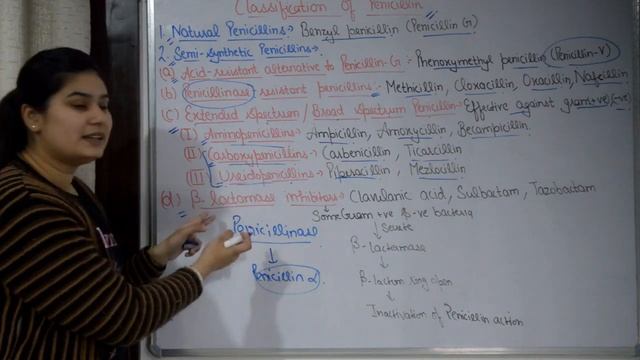 Classification of Penicillin
1. Natural Penicillins:- Benzyl penicillin (Penicillin G)
2. Semi-synthetic Penicillins:-
(a) Acid-resistant alternative to Penicillin-G :- Phenoxymethyl penicillin (Penicillin-V)
(b) Penicillinase resistant penicillins:- Methicillin, Cloxacillin, Oxacillin, Nafcillin
(c) Extended Spectrum / Broad spectrum Penicillin:- Effective against gram+ve/-ve
(I) Aminopenicillins:- Ampicillin, Amoxycillin, Becampicillin.
(II) Carboxypenicillins:- Carbenicillin, Ticarcillin
(III) Ureidopenicillins:- Piperacillin, Mezlocillin
(d) β-lactamase inhibitors:- Clavulanic acid, Sulbactam, Tazobactam
Some Gram +ve & -ve bacteria
↓ Secrete
Penicillinase
β-lactamase
↓
Penicillin α
β-lactum ring open
↓
Inactivation of Penicillin action